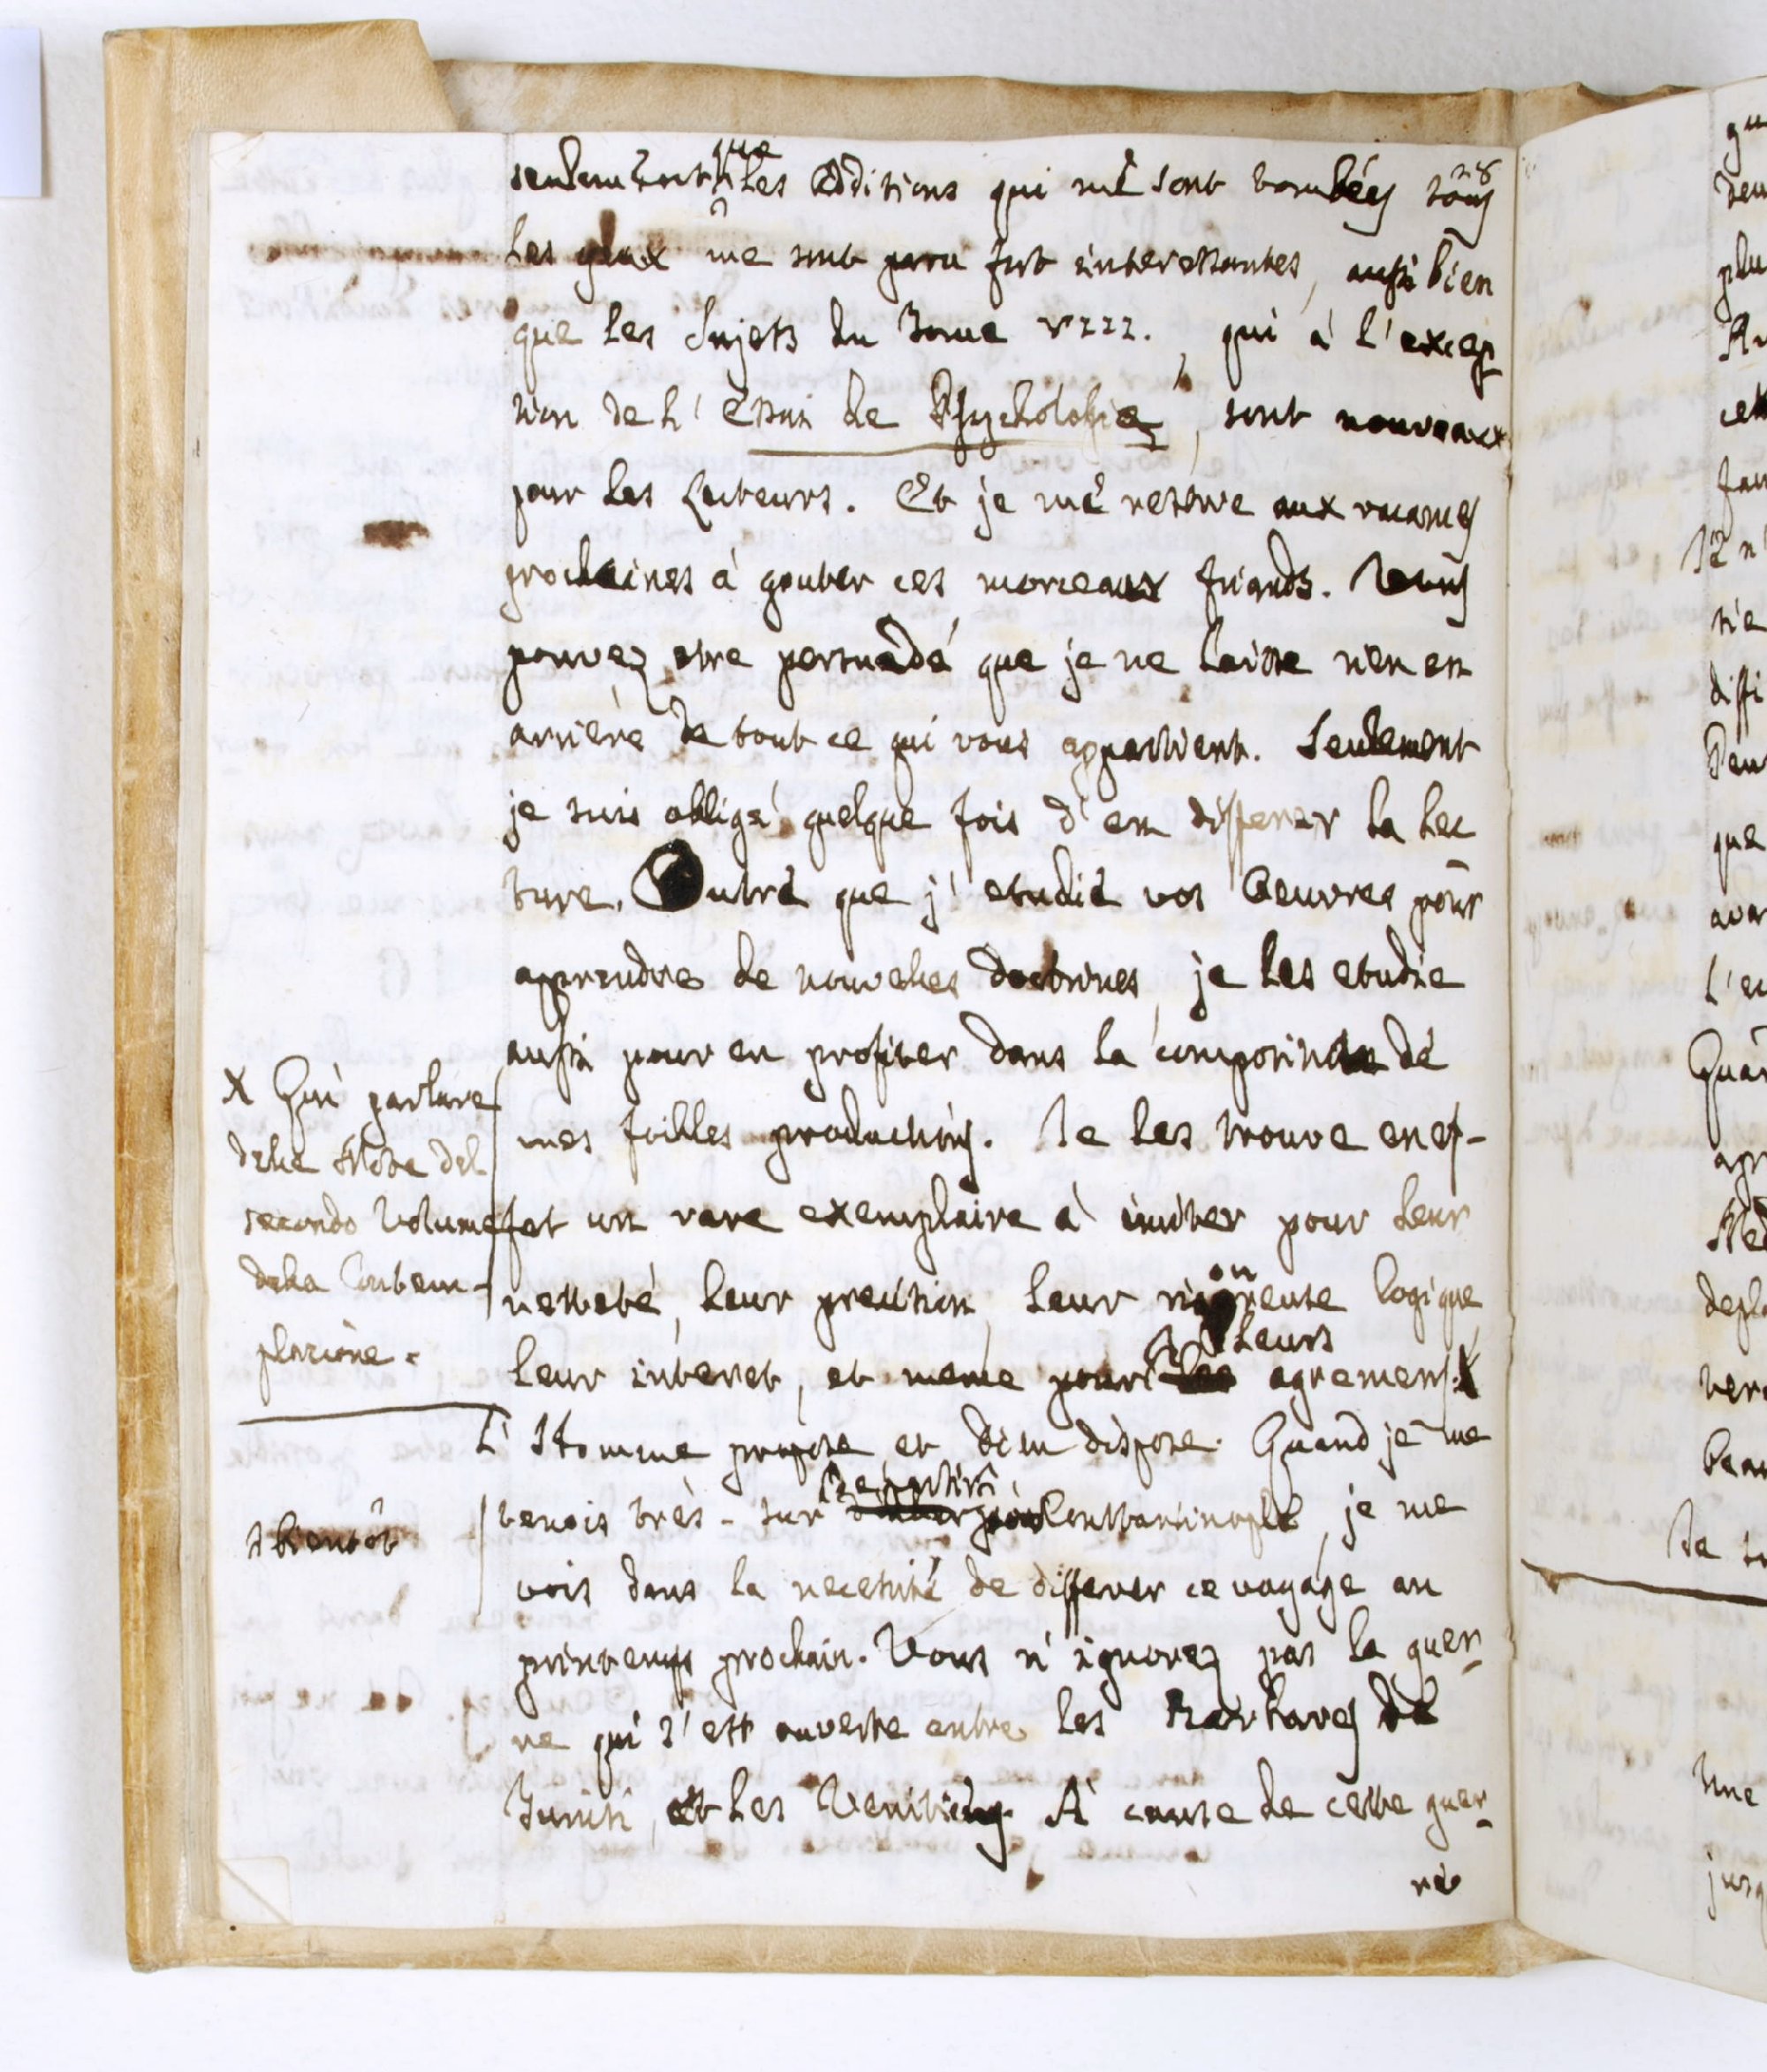 seulement que les Additions qui me sont tombées sous
les yeux me sont paru fort interessantes, aussi bien
que les Sujets du Tome VIII., qui à l'excep
tion de l'Essai de Psychologie, sont nouveaux
pour les Lecteurs. Et je me reserve aux vacances
prochaines à gouter ces morceaux friands. Vous
pouvez etre persuadé que je ne laisse rien en
arriere de tout ce qui vous appartient. Seulement
je suis obligé quelque fois d'en differer la lec
ture. Outre que j'etudie vos Oeuvres pour
apprendre de nouvelles doctrines, je les etudie
aussi pour en profiter dans la composition de
mes foibles productions. Je les trouve en ef-
fet un rare exemplaire à imiter pour leur
netteté, leur precision, leur rigoureuse logique
leur interet, et meme pour leurs agremens. X
X Qui parlare
delle Note del
secondo Volume
della Contem-
plazione.
L'Homme propose et Dieu dispose. Quand je me
tenois très-sur de partir pour Constantinople, je me
bientôt
vois dans la necessité de differer ce voyage au
printemps prochain. Vous n'ignorez pas la guer-
re qui s'est ouverte entre les Barbares de
Tunisi, et les Venitiens. A cause de cette guer-
re